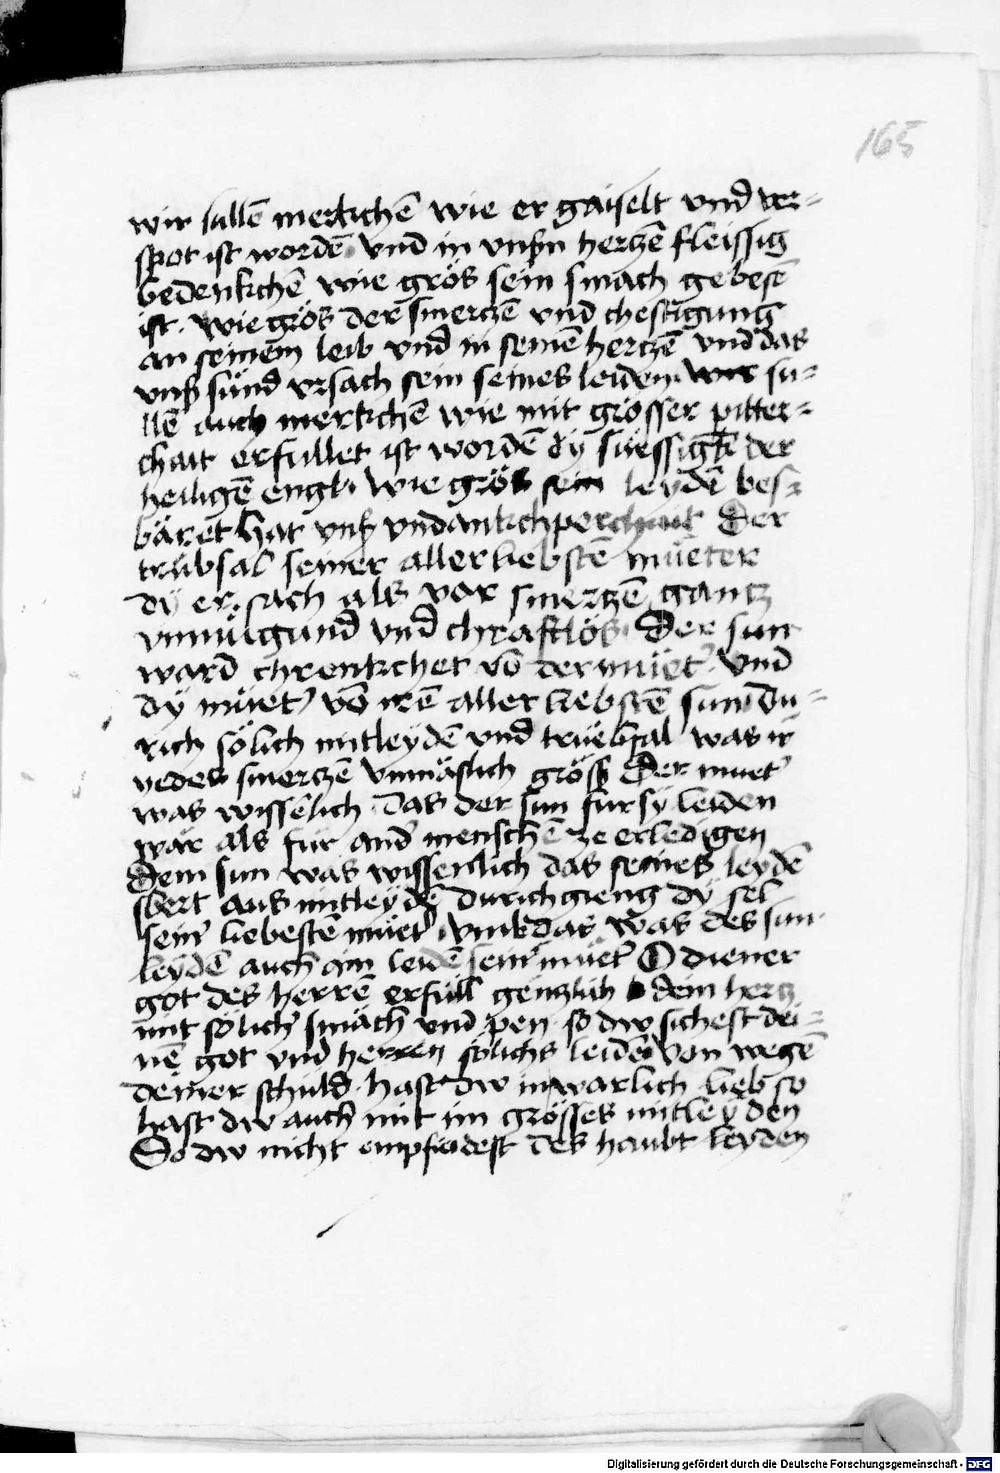 165
wir sullē merkchē wie er gaiselt vnd ver=
spot ist wordē vnd in vnsrn hertzē fleissig
bedenkchē wie grös sein smach gebesē
ist . wie grös der smertzē vnd chestigung
an seinem leib vnd in seinē hertzē vnd das
vnsr sünd vrsach sein seines leiden . su=
llē auch merkchē wie mit grosser pitter=
chait erfullet ist wordē dy süessigkt der
heiligē engl . wie grös sein leydē bes=
bäret hat vnsr vndankchperchait Der
trübsal seiner allerliebstē mueter
dy er sach als vor smertzē gantz
vnmugund vnd chraftlös . Der sun
ward chrenkchet vō der müet' . vnd
dy müet' vō irē aller liebstē sun du=
rich sölich mitleydē vnd trüebsal was ir
yedes smertzē vnmäslich gröss Der muet'
was wissēlich das der sun fur sy leiden
wär als für and' menschē ze erledigen
Dem sun was wissenlich das seines leydē
sbert aus mitleydē durichgieng dy sel
sein' liebestē müet' . das was des sun
leydē auch ain leidē sein' müet' O diener
got des herrē erfüll gentzlich dein hertz
mit sölich' smäch vnd pen so dw sichest dei=
nē got vnd herren sölichs leidē von wegē
deiner schuld . hast dw in warlich lieb so
hast dw auch mit im grösses mitleyden
So dw nicht empfindest des haubt leyden
Digitalisierung gefördert durch die Deutsche Forschungsgemeinschaft - DFG